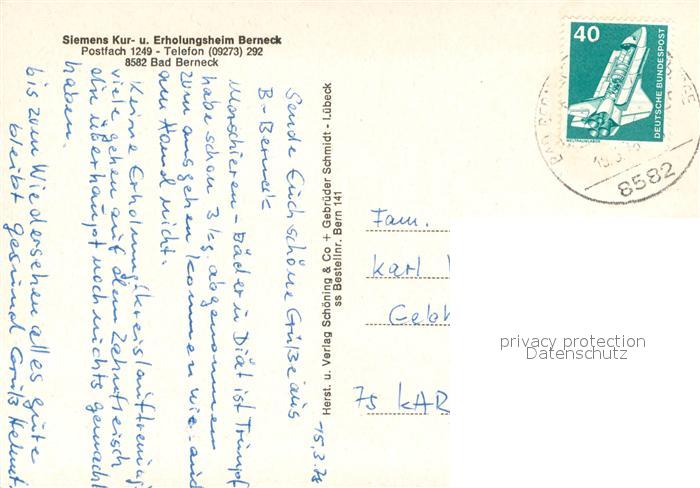 Siemens Kur- u. Erholungsheim Berneck
Postfach 1249 - Telefon (09273) 292
8582 Bad Berneck
40
DEUTSCHE BUNDESPOST
WELTRAUMLABOR
8582
15.3.78
Sende Euch schöne Grüße aus
B-Berneck
Marschieren - Bäder u Diät ist Trumpf
habe schon 3 kg. abgenommen
zum ausgehen kommen wir
am Abend nicht.
Keine Erholung (Kreislauftraining
viele gehen auf dem Zahnfleisch
die überhaupt noch nichts gemacht
haben.
bis zum Wiedersehen alles gute
bleibt gesund Grüß Helmut
Herst. u. Verlag Schöning & Co + Gebrüder Schmidt - Lübeck
ss Bestellnr. Bern 141
Fam.
Karl
75 KAR
privacy protection
Datenschutz